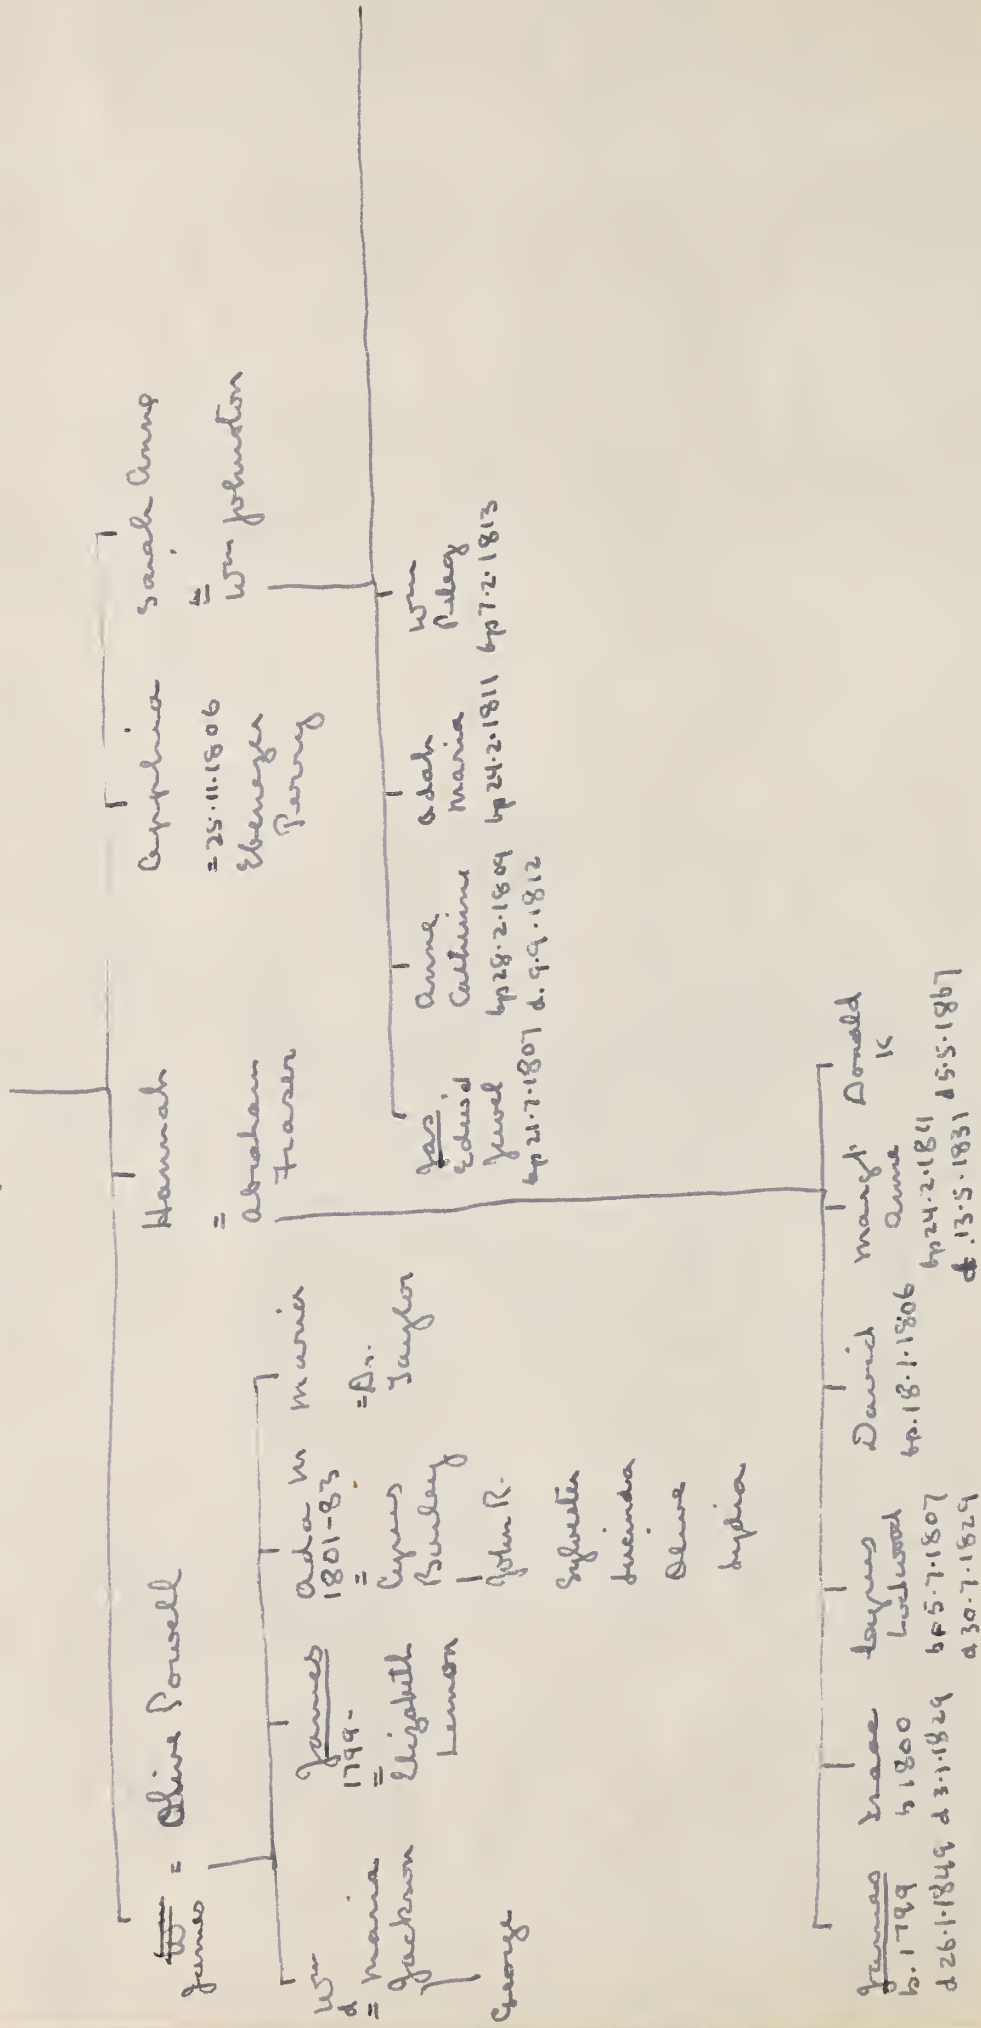 W̶m̶ = Olive Powell
James
Hannah
=
Abraham
Fraser
Apphia
= 25.11.1806
Ebenezer
Perry
Sarah Anne
=
Wm Johnston
Wm
d
= Maria
Jackson
George
James
1799-
=
Elizabeth
Lemon
Ada M
1801-83
=
Cyrus
John R.
Sylvester
Lucinda
Olive
Lydia
Maria
= Dr.
Taylor
Jas
Edwd
Jewel
bp 21.7.1807
Anne
Catherine
bp 28.2.1809
d. 9.9.1812
Adah
Maria
bp 24.2.1811
Wm
Peleg
bp 7.2.1813
James
b. 1799
d 26.1.1849
Isaac
b 1800
d 3.1.1829
Lockwood
bp 5.7.1807
d 30.7.1829
David
bp. 18.1.1806
Margt
Anne
bp 24.2.1811
d. 13.5.1831
Donald
K
d 5.5.1867